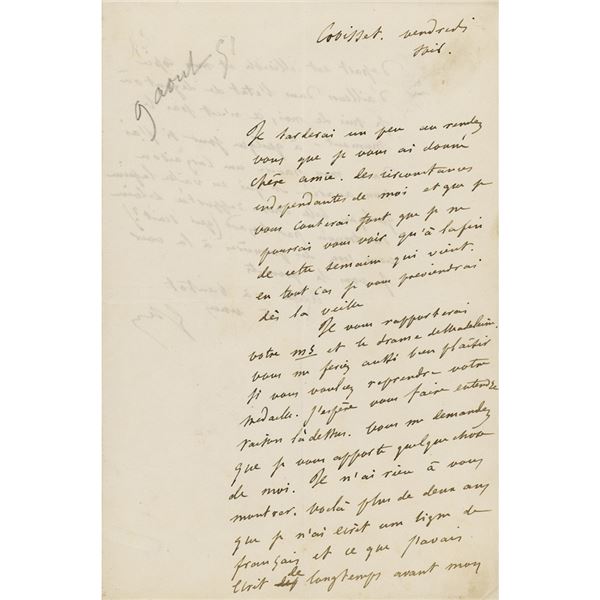 9 aout 51
Croisset. vendredi
soir.
Je tarderai un peu au rendez
vous que je vous ai donné
chère amie. des circonstances
indépendantes de moi et que je
vous conterai font que je ne
pourrai vous voir qu'à la fin
de cette semaine qui vient
en tout cas je vous préviendrai
dès la veille
Je vous rapporterai
votre ms et le drame de Madeleine.
vous me feriez aussi bien plaisir
si vous vouliez reprendre votre
médaille. J'espère vous faire entendre
raison là dessus. Vous me demandez
que je vous apporte quelque chose
de moi. Je n'ai rien à vous
montrer. Voilà plus de deux ans
que je n'ai écrit une ligne de
français et ce que j'avais
écrit de longtemps avant mon